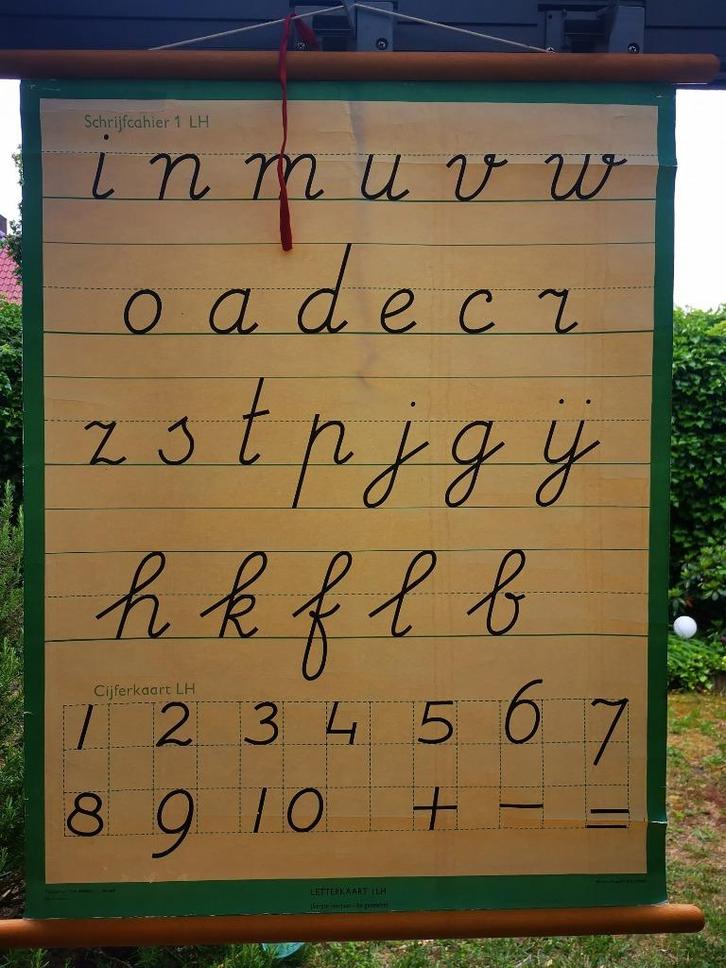 Schrijfcahier 1 LH
i n m u v w
o a d e c r
z s t p j g ij
h k f l b
Cijferkaart LH
1 2 3 4 5 6 7
8 9 10 + − =
LETTERKAART 1LH